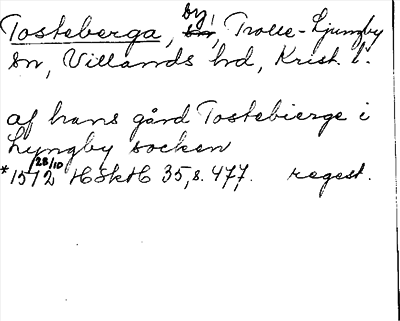 Tosteberga, by, Trolle-Ljungby
sn, Villands hd, Krist. l.
af hans gård Tostebierge i
Lyngby socken
*1572 28/10 HSkH 35, s. 477. regest.